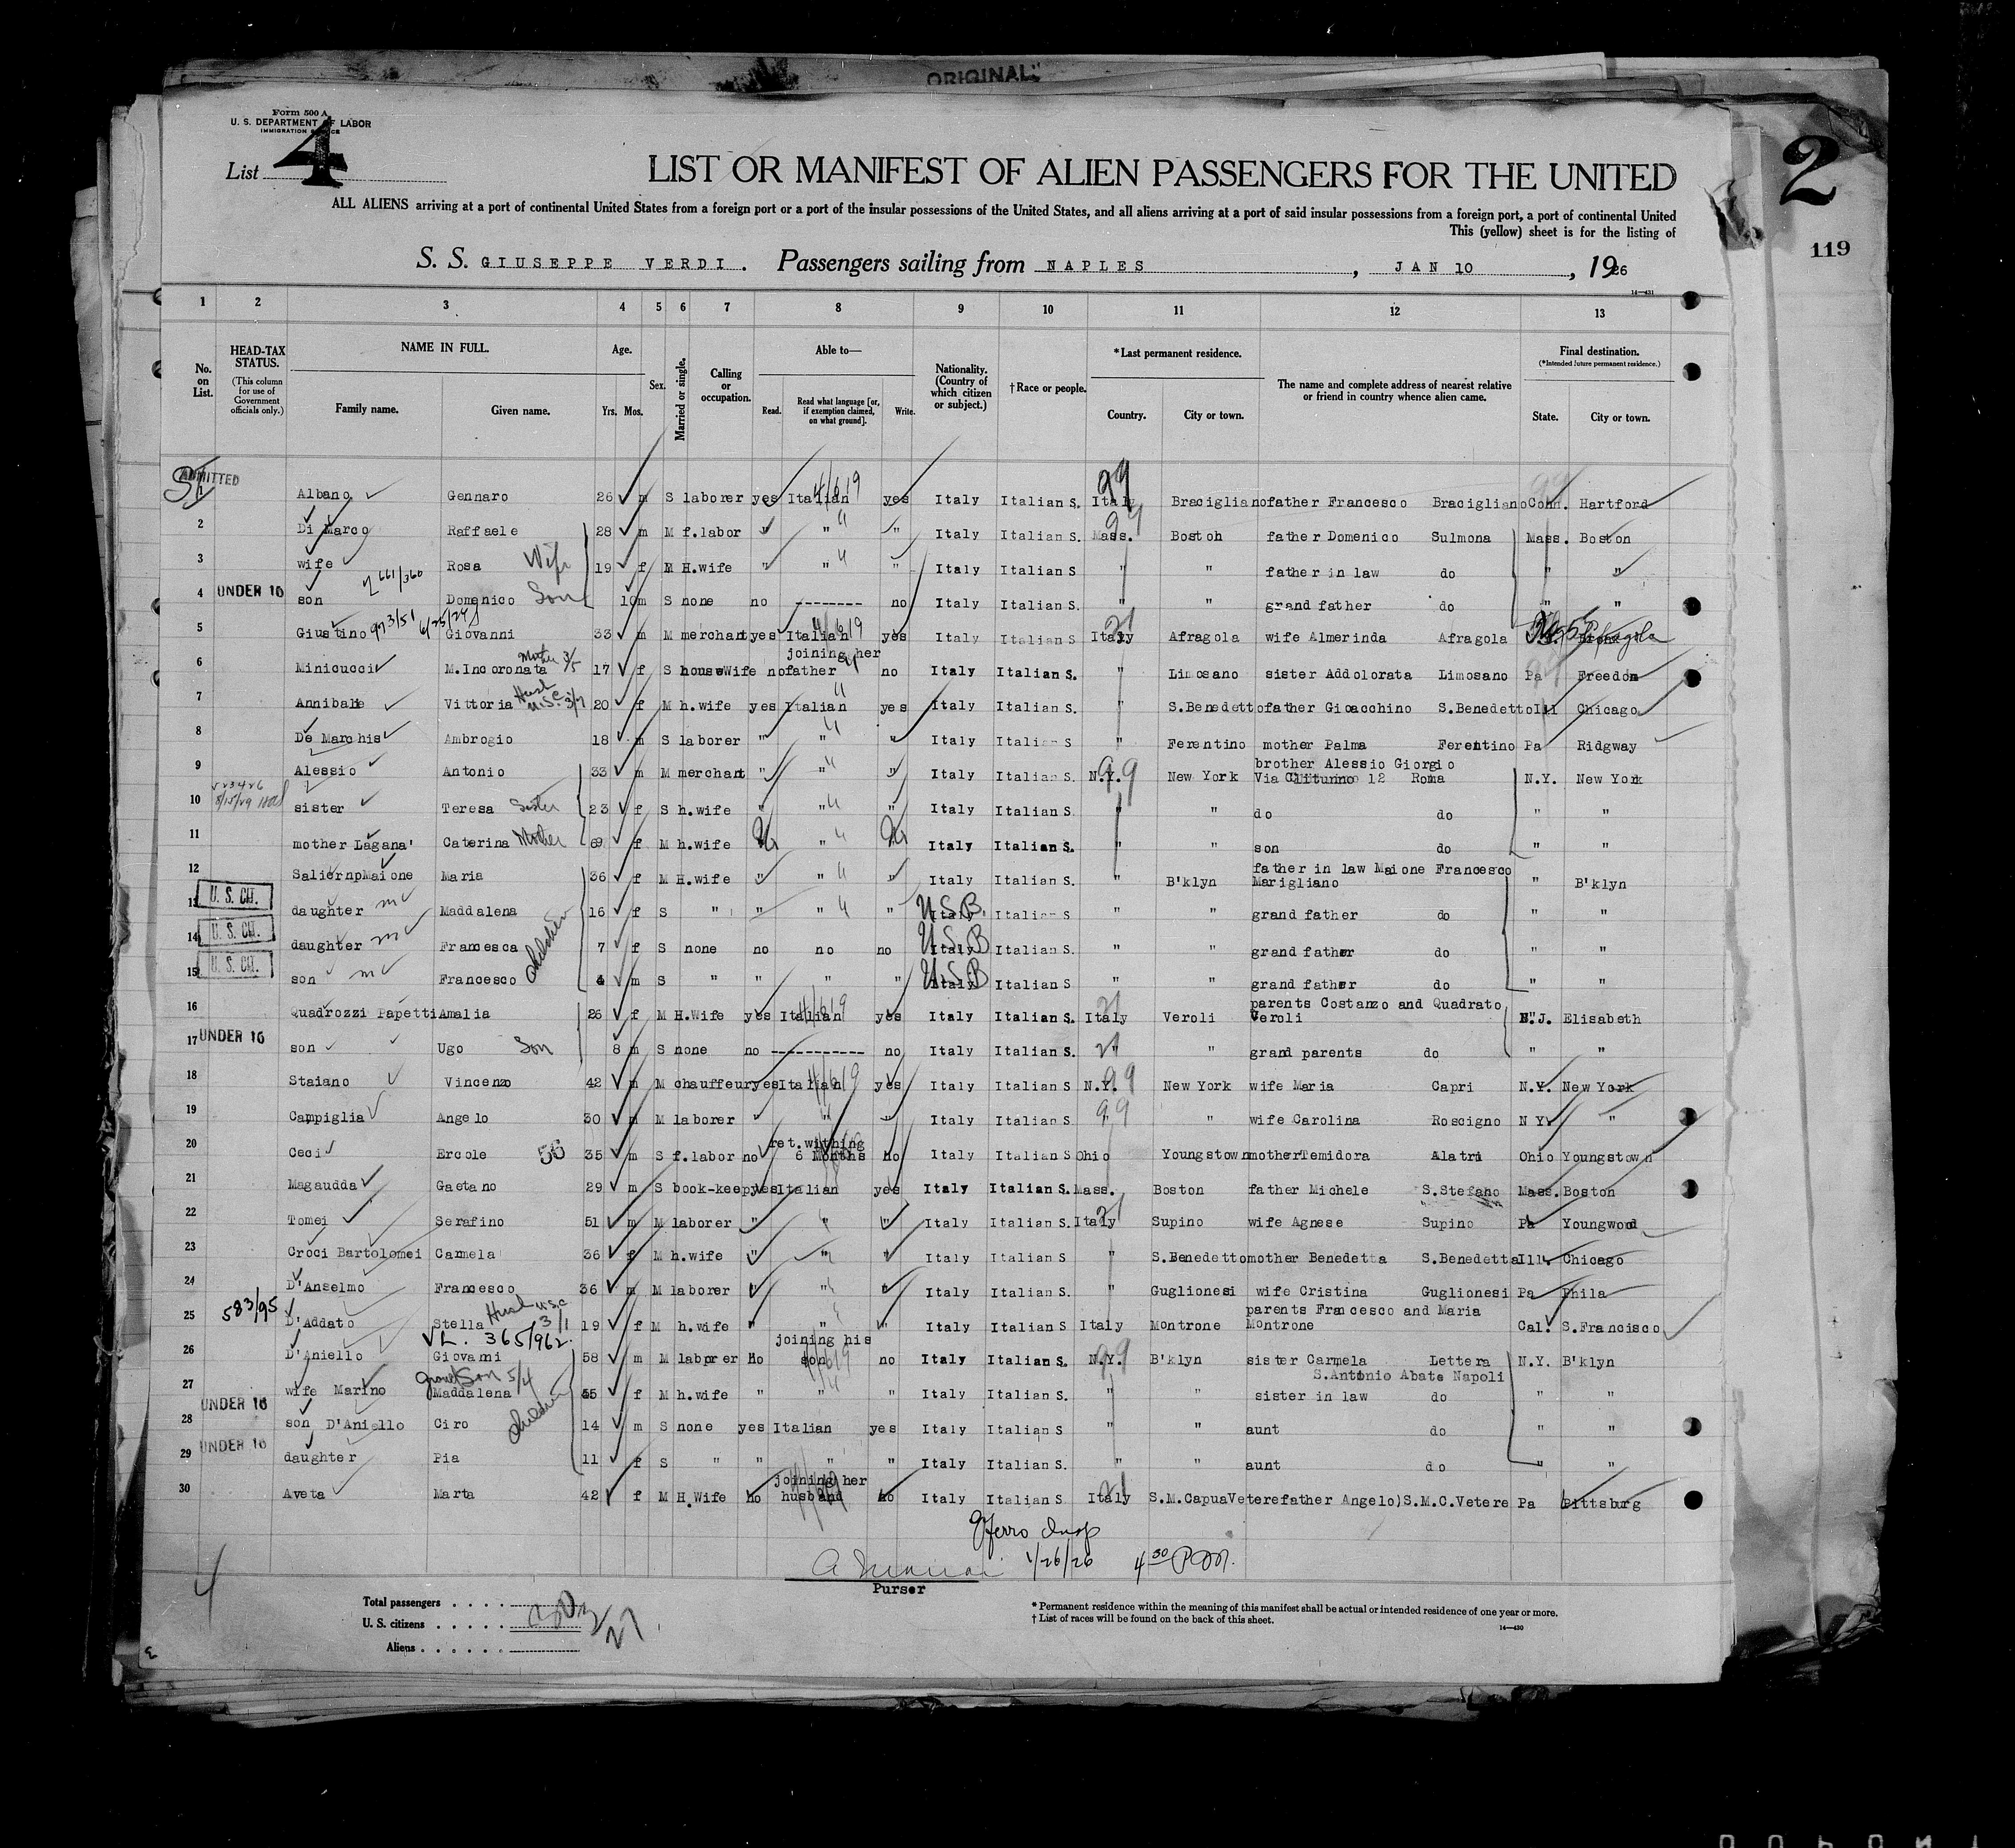 ORIGINAL
Form 500 A
U. S. DEPARTMENT OF LABOR
IMMIGRATION SERVICE
List 4
2
119
LIST OR MANIFEST OF ALIEN PASSENGERS FOR THE UNITED
ALL ALIENS arriving at a port of continental United States from a foreign port or a port of the insular possessions of the United States, and all aliens arriving at a port of said insular possessions from a foreign port, a port of continental United
This (yellow) sheet is for the listing of
S. S. GIUSEPPE VERDI. Passengers sailing from NAPLES, JAN 10, 1926
14—431
1 2 3 4 5 6 7 8 9 10 11 12 13
No. on List. HEAD-TAX STATUS. (This column for use of Government officials only.) NAME IN FULL. Family name. Given name. Age. Yrs. Mos. Sex. Married or single. Calling or occupation. Able to— Read. Read what language [or, if exemption claimed, on what ground]. Write. Nationality. (Country of which citizen or subject.) †Race or people. *Last permanent residence. Country. City or town. The name and complete address of nearest relative or friend in country whence alien came. Final destination. (*Intended future permanent residence.) State. City or town.
ADMITTED Albano Gennaro 26 m S laborer yes Italian yes Italy Italian S. Italy Bracigliano father Francesco Bracigliano Conn. Hartford
2 Di Marco Raffaele 28 m M f.labor " " " Italy Italian S. Mass. Boston father Domenico Sulmona Mass. Boston
3 wife Rosa Wife 19 f M H.wife " " " Italy Italian S " " father in law do " "
4 UNDER 16 son 661/360 Domenico Son 10 m S none no -------- no Italy Italian S. " " grand father do " "
5 Giustino 6/25/29 Giovanni 33 m M merchant yes Italian yes Italy Italian S. Italy Afragola wife Almerinda Afragola
6 Minicucci M.Incoronata Mother 3/5 17 f S housewife no joining her father no Italy Italian S. " Limosano sister Addolorata Limosano Pa Freedom
7 Annibale Vittoria Husb U.S.C. 3/7 20 f M h.wife yes Italian yes Italy Italian S. " S.Benedetto father Gioacchino S.Benedetto Ill Chicago
8 De Marchis Ambrogio 18 m S laborer " " " Italy Italian S " Ferentino mother Palma Ferentino Pa Ridgway
9 Alessio Antonio 33 m M merchant " " " Italy Italian S. N.Y. New York brother Alessio Giorgio Via Clitunno 12 Roma N.Y. New York
10 8/15/29 sister Teresa Sister 23 f S h.wife " " " Italy Italian S " " do do " "
11 mother Lagana' Caterina Mother 69 f M h.wife " Italy Italian S. " " son do " "
12 Salierno Maione Maria 36 f M H.wife " " " Italy Italian S. " B'klyn father in law Maione Francesco Marigliano " B'klyn
13 U. S. CIT. daughter Maddalena children 16 f S " " " " Italy U.S.B. Italian S " " grand father do " "
14 U. S. CIT. daughter Francesca 7 f S none no no no Italy U.S.B Italian S. " " grand father do " "
15 U. S. CIT. son Francesco 4 m S " " " " Italy U.S.B Italian S " " grand father do " "
16 Quadrozzi Papetti Amalia 26 f M H.Wife yes Italian yes Italy Italian S. Italy Veroli parents Costanzo and Quadrato Veroli N.J. Elisabeth
17 UNDER 16 son Ugo Son 8 m S none no ----------- no Italy Italian S. " " grand parents do " "
18 Staiano Vincenzo 42 m M chauffeur yes Italian yes Italy Italian S N.Y. New York wife Maria Capri N.Y. New York
19 Campiglia Angelo 30 m M laborer " " " Italy Italian S. " " wife Carolina Roscigno N Y. "
20 Ceci Ercole 56 35 m S f.labor no ret.withing 6 Months no Italy Italian S Ohio Youngstown mother Temidora Alatri Ohio Youngstown
21 Magaudda Gaetano 29 m S book-keep yes Italian yes Italy Italian S. Mass. Boston father Michele S.Stefano Mass. Boston
22 Tomei Serafino 51 m M laborer " " " Italy Italian S. Italy Supino wife Agnese Supino Pa Youngwood
23 Croci Bartolomei Carmela 36 f M h.wife " " " Italy Italian S " S.Benedetto mother Benedetta S.Benedetta Ill. Chicago
24 D'Anselmo Francesco 36 m M laborer " " " Italy Italian S. " Guglionesi wife Cristina Guglionesi Pa Phila
25 583/95 D'Addato Stella Husb U.S.C 3/1 19 f M h.wife " " " Italy Italian S Italy Montrone parents Francesco and Maria Montrone Cal. S.Francisco
VL. 365/962.
26 D'Aniello Giovanni 58 m M laborer no joining his son no Italy Italian S. N.Y. B'klyn sister Carmela Lettera N.Y. B'klyn
S.Antonio Abate Napoli
27 wife Marino Maddalena Son 5/4 55 f M h.wife " " " Italy Italian S. " " sister in law do " "
28 UNDER 16 son D'Aniello Ciro children 14 m S none yes Italian yes Italy Italian S " " aunt do " "
29 UNDER 16 daughter Pia 11 f S " " " " Italy Italian S. " " aunt do " "
30 Aveta Marta 42 f M H.Wife no joining her husband no Italy Italian S Italy S.M.CapuaVetere father Angelo)S.M.C.Vetere Pa Pittsburg
1/26/26 4 30 P.M.
Purser
4
Total passengers
U. S. citizens
Aliens
27
* Permanent residence within the meaning of this manifest shall be actual or intended residence of one year or more.
† List of races will be found on the back of this sheet.
14—430